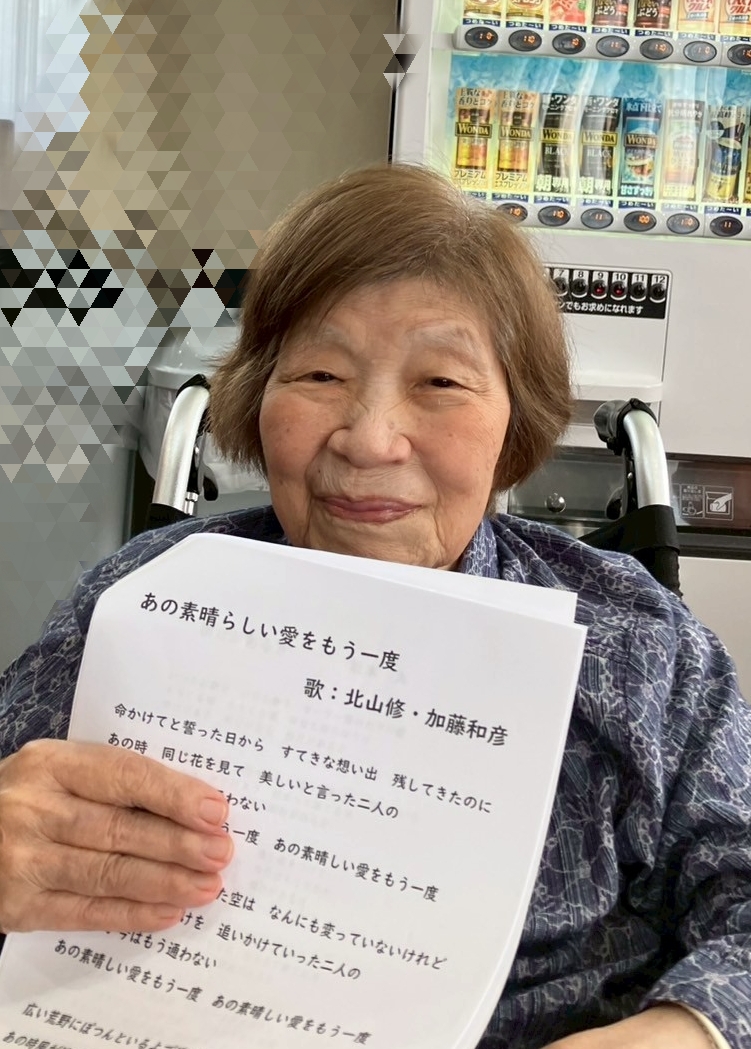 WONDA
WONDA
WONDA
WONDA
プレミアム
プレミアム
BLACK
7 8 9 10 11 12
でもお求めになれます
あの素晴らしい愛をもう一度
歌：北山修・加藤和彦
命かけてと誓った日から　すてきな想い出　残してきたのに
あの時　同じ花を見て　美しいと言った二人の
わない
う一度　あの素晴しい愛をもう一度
た空は　なんにも変っていないけれど
けを　追いかけていった二人の
今はもう通わない
あの素晴しい愛をもう一度　あの素晴しい愛をもう一度
広い荒野にぽつんといるよ
あの時